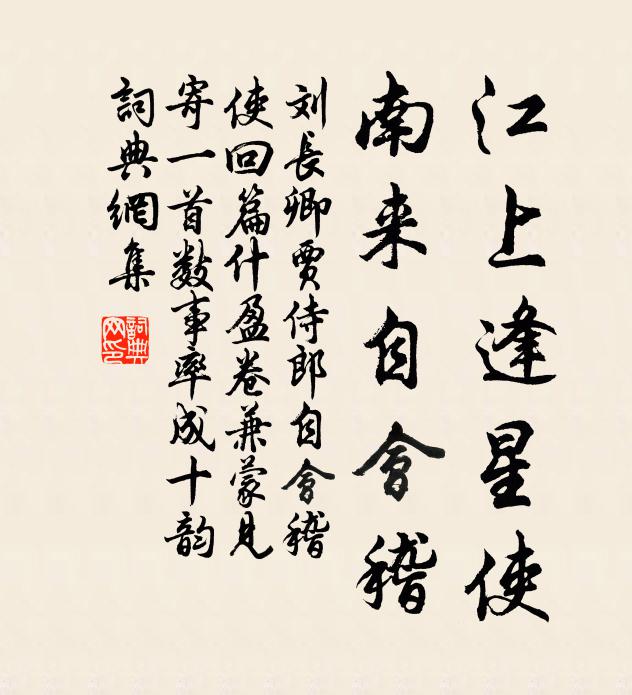 江上逢星使
南来自會稽
刘長卿賈侍郎自會稽
使回篇什盈卷兼蒙見
寄一首数事率成十韵
詞典網集
詞典網印